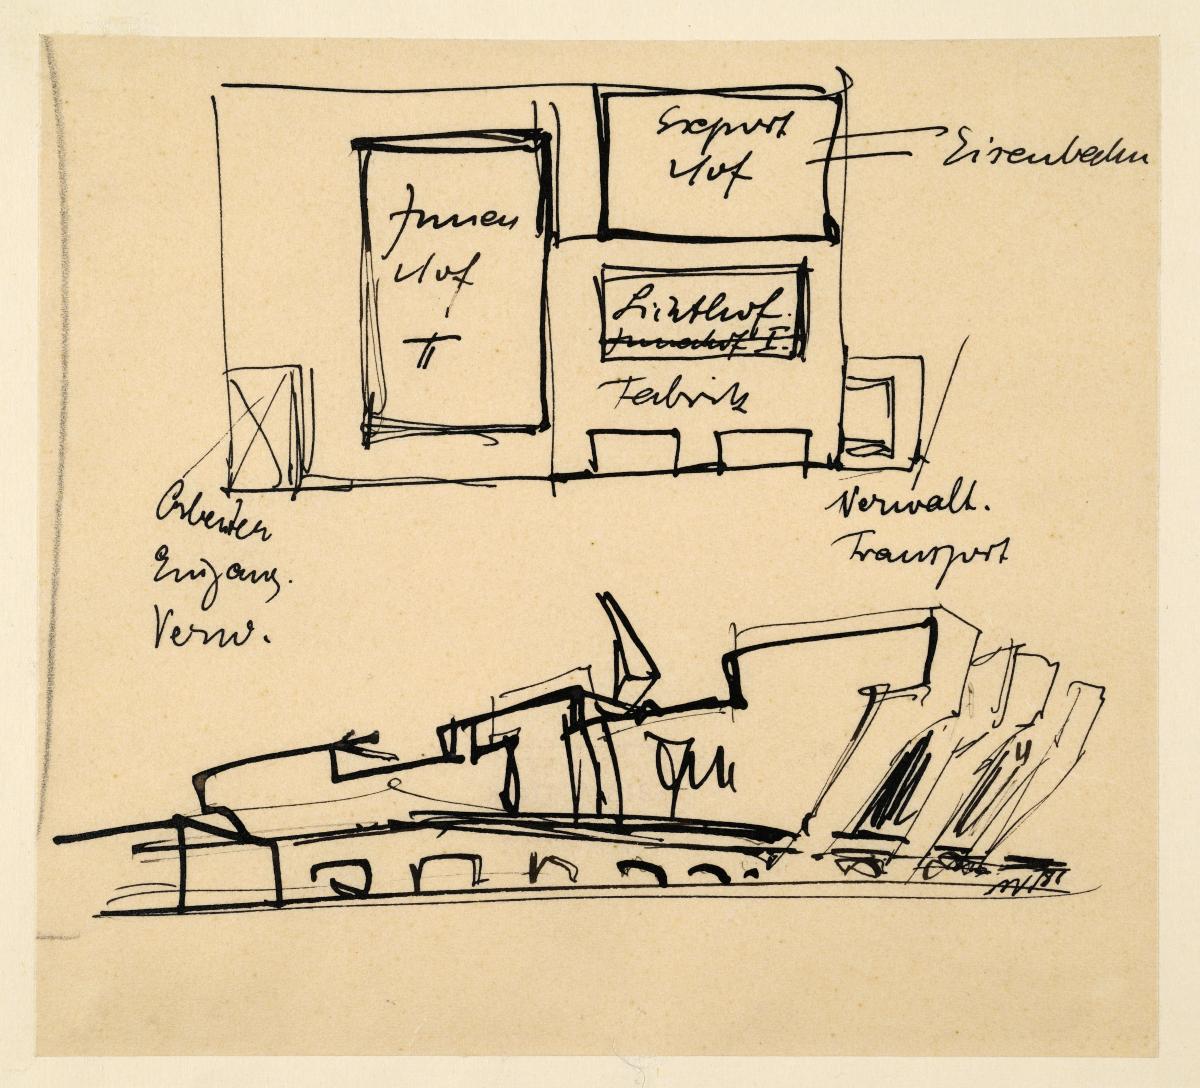 Export
Hof
Eisenbahn
Innen
Hof
II
Lichthof.
Innenhof I.
Fabrik
Arbeiter
Eingang.
Verw.
Verwalt.
Transport